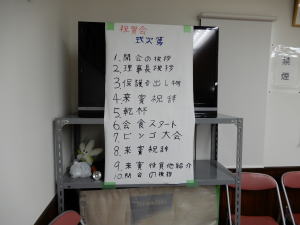 祝賀会
式次第
1. 開会の挨拶
2. 理事長挨拶
3. 保護者出し物
4. 来賓祝辞
5. 乾杯
6. 会食スタート
7. ビンゴ大会
8. 来賓祝辞
9. 来賓 役員他紹介
10. 閉会の挨拶
禁煙